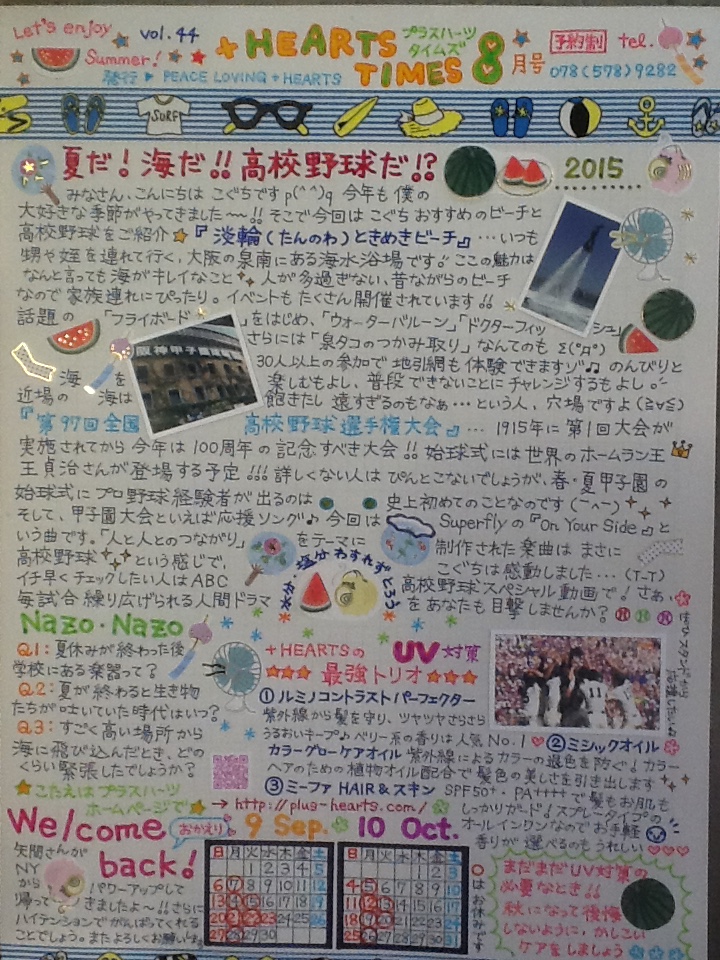 Let's enjoy Summer!
vol.44
+HEARTS TIMES
プラスハーツタイムズ
8月号
予約制 tel.
078(578)9282
発行▶PEACE LOVING+HEARTS
SURF
夏だ！海だ!!高校野球だ!?
2015
みなさん、こんにちは こぐちです p(^^)q 今年も僕の
大好きな季節がやってきました〜!! そこで今回は こぐち おすすめのビーチと
高校野球をご紹介★『淡輪(たんのわ)ときめきビーチ』…いつも
甥や姪を連れて行く、大阪の泉南にある海水浴場です!! ここの魅力は
なんと言っても海がキレイなこと 人が多過ぎない、昔ながらのビーチ
なので家族連れにぴったり。イベントもたくさん開催されています!!
話題の 「フライボード 」をはじめ、「ウォーターバルーン」「ドクターフィッシュ」
さらには「泉タコのつかみ取り」なんてのも Σ(°Д°)
30人以上の参加で地引網も体験できますゾ♫ のんびりと
海を 楽しむもよし、普段できないことにチャレンジするもよし
近場の 海は 飽きたし遠すぎるのもなぁ…という人、穴場ですよ(≧∀≦)
阪神甲子園球場
『第97回全国 高校野球選手権大会』… 1915年に第1回大会が
実施されてから今年は100周年の記念すべき大会!! 始球式には世界のホームラン王
王貞治さんが登場する予定!!! 詳しくない人はぴんとこないでしょうが、春・夏甲子園の
始球式にプロ野球経験者が出るのは 史上初めてのことなのです(￣^￣)
そして、甲子園大会といえば応援ソング♪ 今回は Superflyの『On Your Side』と
いう曲です。「人と人とのつながり」 をテーマに 制作された楽曲はまさに
高校野球 という感じで、 こぐちは感動しました…(T-T)
イチ早くチェックしたい人はABC 高校野球スペシャル動画で！さぁ、
毎試合繰り広げられる人間ドラマ をあなたも目撃しませんか？
水分・塩分わすれずとろう
Nazo・Nazo
Q1：夏休みが終わった後
学校にある楽器って？
Q2：夏が終わると生き物
たちが吐いていた時代はいつ？
Q3：すごく高い場所から
海に飛び込んだとき、どの
くらい緊張したでしょうか？
★こたえはプラスハーツ
ホームページで★ → http://plus-hearts.com/
+HEARTSの UV対策
★★★最強トリオ★★★
①ルミノコントラストパーフェクター
紫外線から髪を守り、ツヤツヤさらさら
うるおいキープ♪ベリー系の香りは人気No.1♥②ミシックオイル
カラーグローケアオイル 紫外線によるカラーの退色を防ぐ！カラー
ヘアのための植物オイル配合で髪色の美しさを引き出します
③ミーファ HAIR&スキン SPF50+、PA++++で髪もお肌も
しっかりガード！スプレータイプの
オールインワンなのでお手軽
香りが選べるのもうれしい♡♡♡
Welcome back!
おかえり
矢間さんが
NY
から パワーアップして
帰ってきましたよ〜!! さらに
ハイテンションでがんばってくれる
ことでしょう。またよろしくお願いします
9 Sep. 10 Oct.
日月火水木金土
1 2 3 4 5
6 7 8 9 10 11 12
13 14 15 16 17 18 19
20 21 22 23 24 25 26
27 28 29 30
日月火水木金土
1 2 3
4 5 6 7 8 9 10
11 12 13 14 15 16 17
18 19 20 21 22 23 24
25 26 27 28 29 30 31
○はお休みです
まだまだUV対策の
必要なとき!!
秋になって後悔
しないように、かしこい
ケアをしましょう